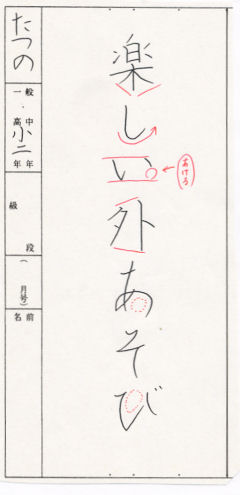 楽しい外あそび
あける
たつの
一般・
高 中
小二
年 年
級
段
(　月号)
名前